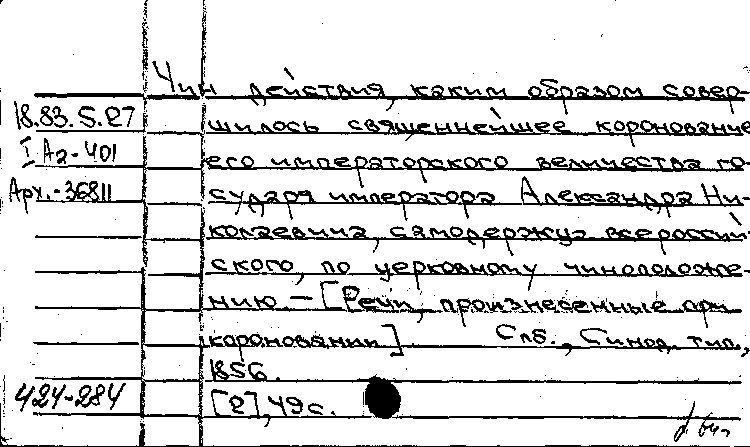 Чин действия, каким образом совер-
18.83.5.27
шилось священнейшее коронование
I Аг-401
его императорского величества го-
Арх.-36811
сударя императора Александра Ни-
колаевича, самодержца всероссий-
ского, по церковному чиноположе-
нию. — [Речи, произнесенные при
короновании] Спб., Синод. тип.,
1856.
424-284
[2], 49 с.